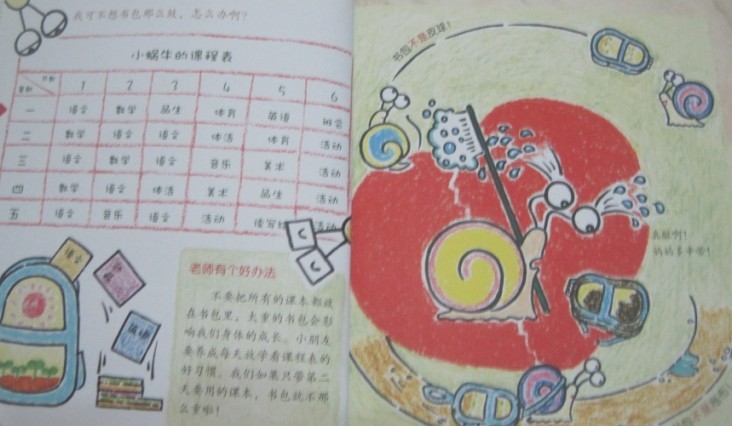 我可不想书包那么鼓，怎么办啊？
小蜗牛的课程表
节数 1 2 3 4 5 6
星期
一 语文 数学 品生 体育 英语 班会
二 数学 语文 语文 体活 体育 活动
三 语文 数学 语文 音乐 美术 活动
四 数学 语文 体活 美术 品生 活动
五 语文 音乐 语文 活动 读写绘 活动
语文
数学
老师有个好办法
不要把所有的课本都放
在书包里，太重的书包会影
响我们身体的成长。小朋友
要养成每天放学看课程表的
好习惯。我们如果只带第二
天要用的课本，书包就不那
么重啦！
书包不是皮球！
妈妈多辛苦！
书包不是